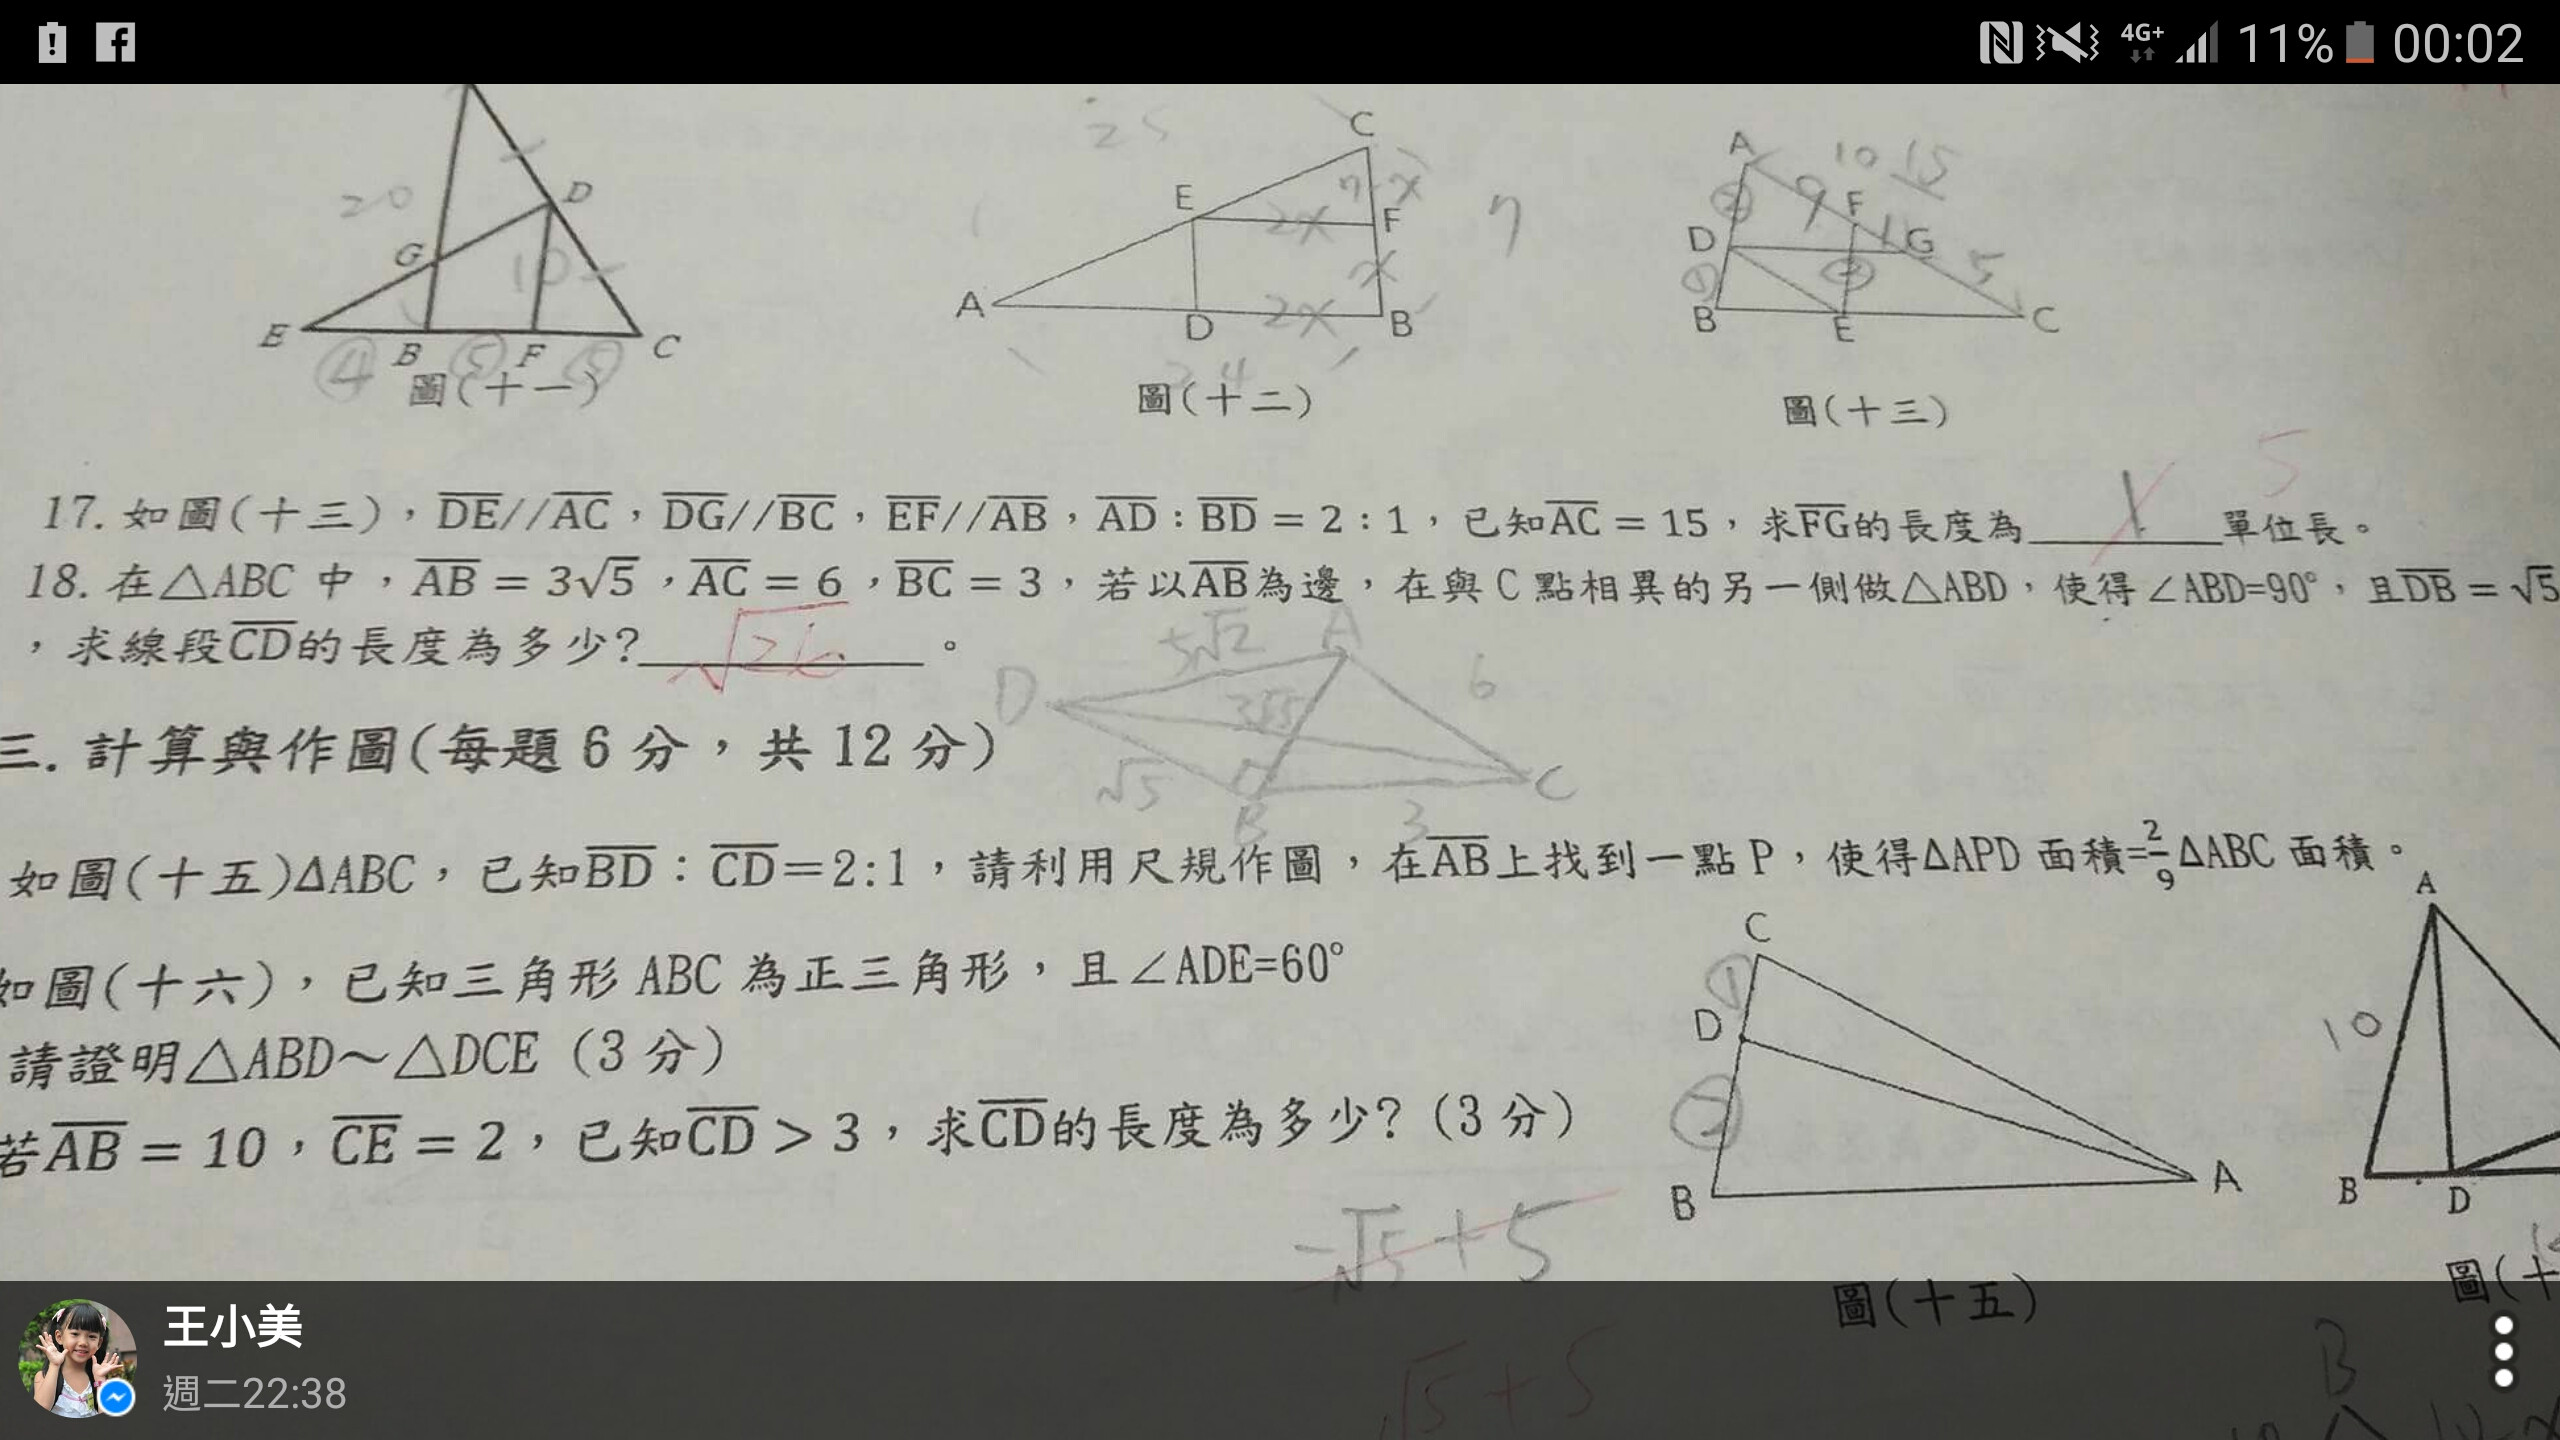 11% 00:02
4G+
20
G
D
10
E
B
F
C
④ ⑤ ⑤
圖(十一)
25
C
E
7
x
2x
F
7
x
A
D
2x
B
24
圖(十二)
A
10 15
②
9
F
D
1
G
①
②
5
B
E
C
圖(十三)
5
17. 如圖(十三),DE//AC,DG//BC,EF//AB,AD:BD = 2:1,已知AC = 15,求FG的長度為 1 單位長。
18. 在△ABC 中,AB = 3√5,AC = 6,BC = 3,若以AB為邊,在與 C 點相異的另一側做△ABD,使得∠ABD=90°,且DB = √5
,求線段CD的長度為多少? √26 。
5√2
A
6
D
3√5
√5
B
3
C
三. 計算與作圖(每題 6 分,共 12 分)
如圖(十五)ΔABC,已知BD:CD=2:1,請利用尺規作圖,在AB上找到一點 P,使得ΔAPD 面積=2/9ΔABC 面積。
如圖(十六),已知三角形 ABC 為正三角形,且∠ADE=60°
請證明△ABD~△DCE (3 分)
若AB = 10,CE = 2,已知CD > 3,求CD的長度為多少? (3 分)
C
①
D
②
B
A
圖(十五)
A
10
B
D
圖(十
-√5+5
√5+5
B
王小美
週二22:38